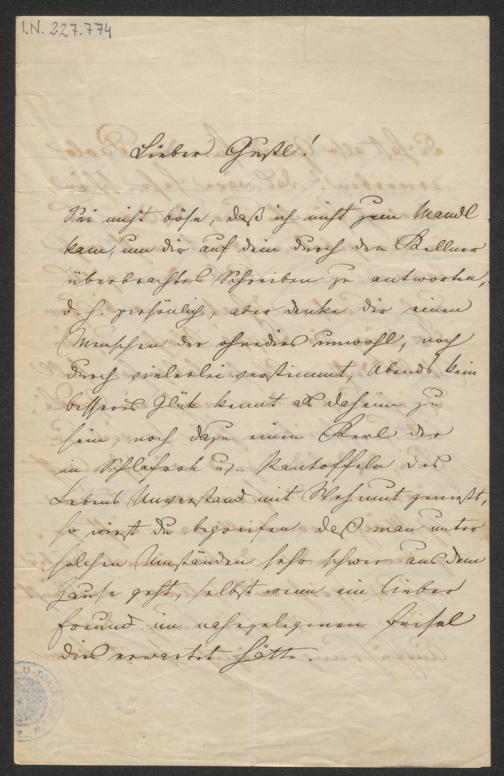 I.N. 227.774
Lieber Gustl!
Sei nicht böse, daß ich nicht zum Mandl
kam, um dir auf dein durch den Kellner
überbrachtes Schreiben zu antworten,
d. h. persönlich, aber denke dir einen
Menschen der ohnedies unwohl, noch
durch vielerlei verstimmt, Abends kein
besseres Glük kennt als daheim zu
sein, noch dazu einen Kerl der
in Schlafrok u. Pantoffeln des
Lebens Unverstand mit Wehmut genießt,
so wirst du begreifen daß man unter
solchen Umständen sehr schwer aus dem
Hause geht, selbst wenn ein lieber
Freund im nahegelegenen Beisel
dies erwartet hätte.